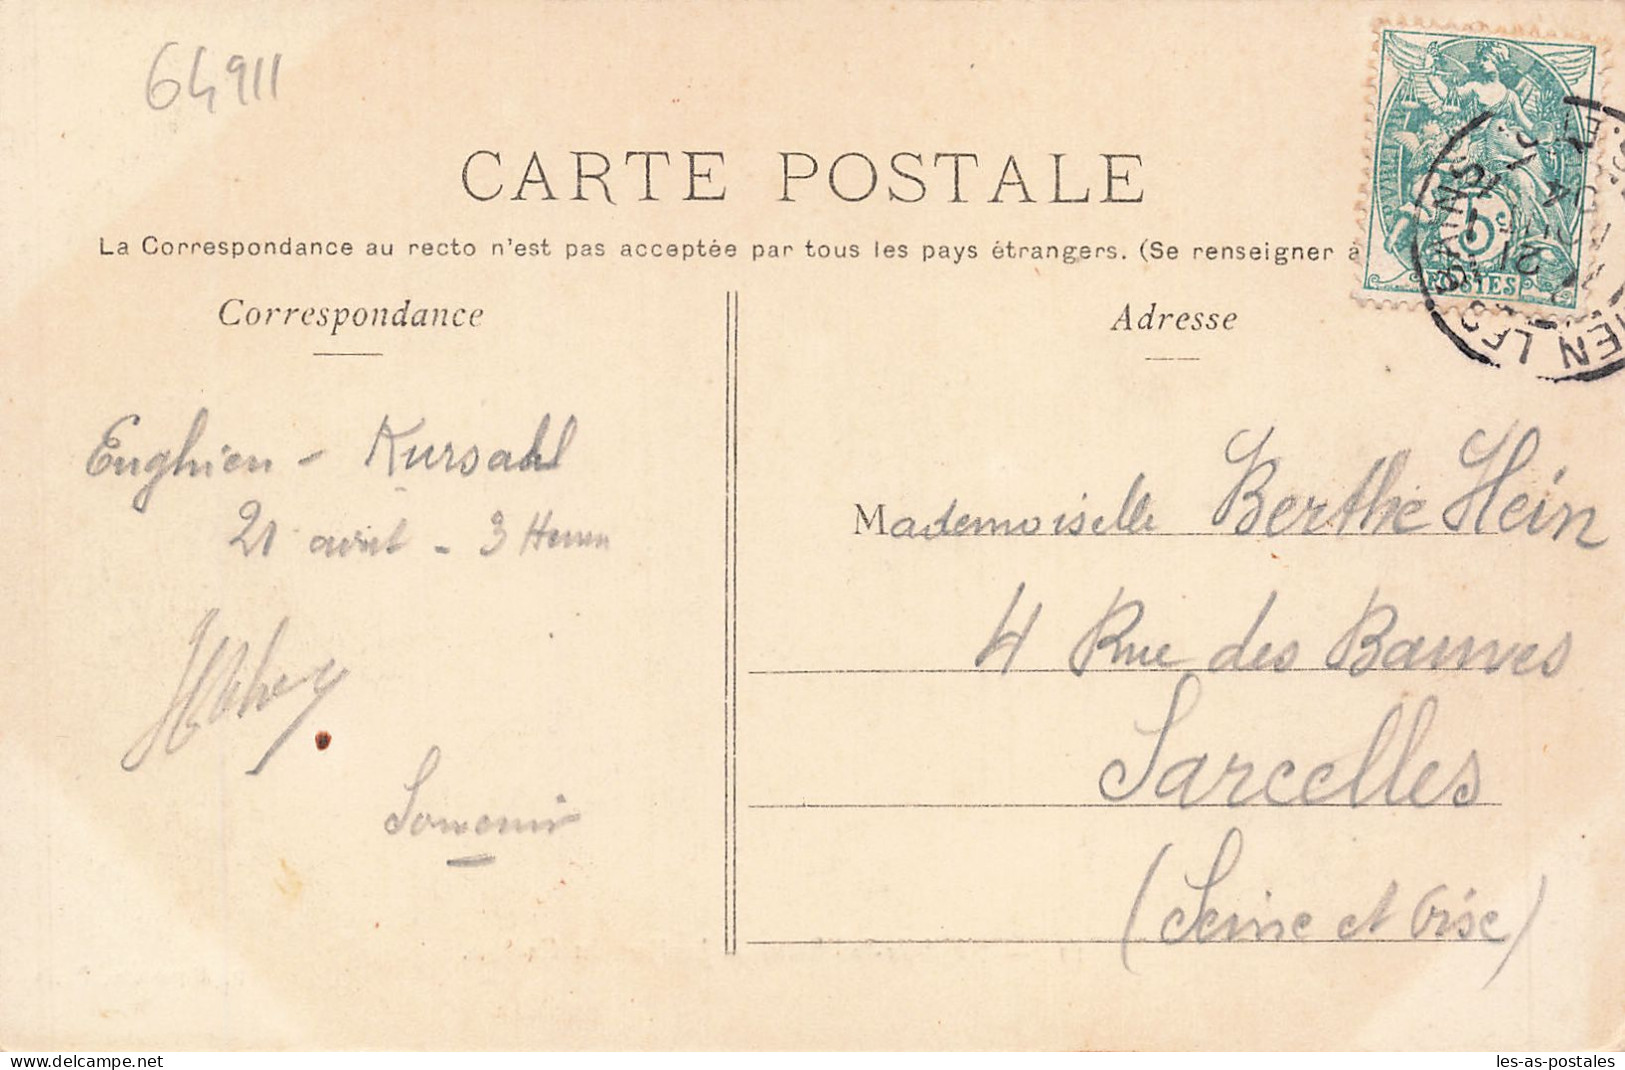 64911
CARTE POSTALE
La Correspondance au recto n'est pas acceptée par tous les pays étrangers. (Se renseigner à
Correspondance
Adresse
POSTES
EN LES BAINS
21
Enghien - Kursahl
21 avril - 3 Heures
Souvenir
Mademoiselle Berthe Hein
4 Rue des Bauves
Sarcelles
(Seine et Oise)
les-as-postales